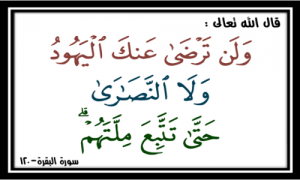 قال الله تعالى :
وَلَن تَرْضَىٰ عَنكَ ٱلْيَهُودُ
وَلَا ٱلنَّصَـٰرَىٰ
حَتَّىٰ تَتَّبِعَ مِلَّتَهُمْ ۗ
سورة البقرة-١٢٠